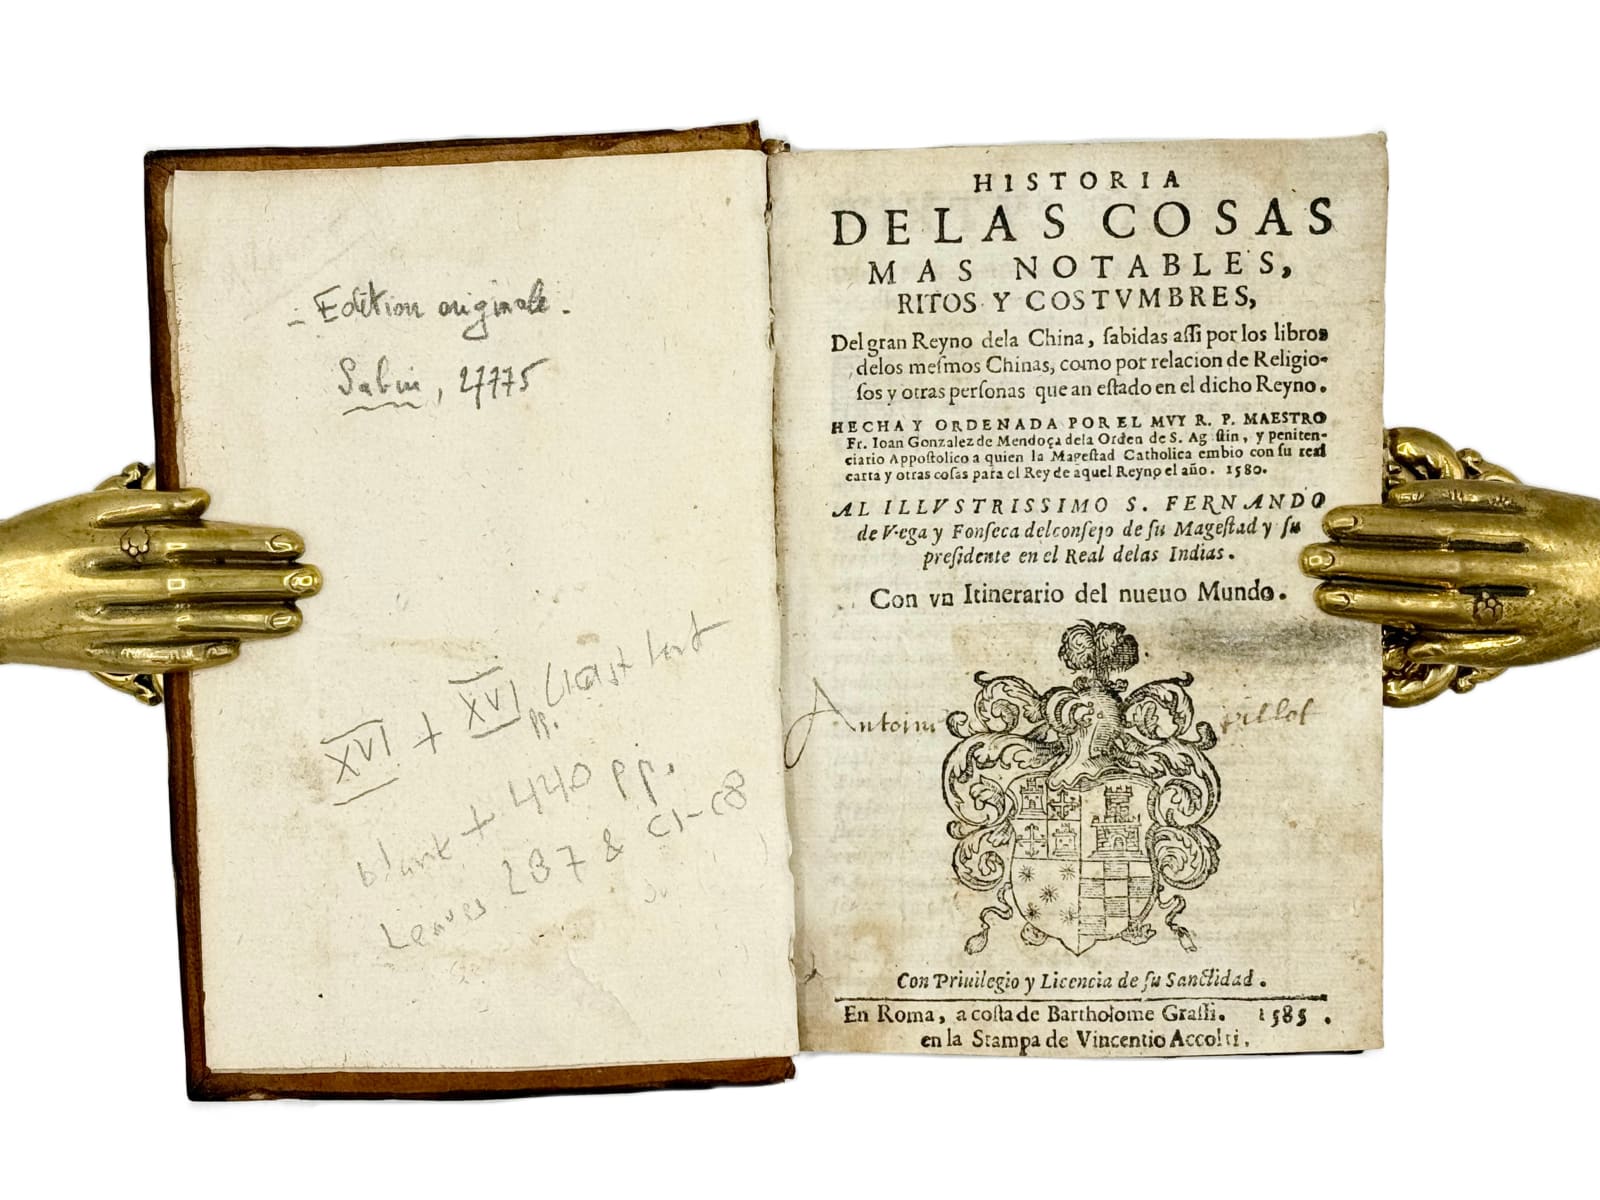 - Edition originale -
Sabin, 27775
XVI + XVI pp. (last
blank + 440 pp.
Leaves & C1-C8
HISTORIA
DELAS COSAS
MAS NOTABLES,
RITOS Y COSTVMBRES,
Del gran Reyno dela China, ſabidas aſſi por los libros
delos meſmos Chinas, como por relacion de Religio-
ſos y otras perſonas que an eſtado en el dicho Reyno.
HECHA Y ORDENADA POR EL MVY R. P. MAESTRO
Fr. Ioan Gonzalez de Mendoça dela Orden de S. Ag ſtin, y peniten-
ciario Appoſtolico a quien la Mageſtad Catholica embio con ſu real
carta y otras coſas para el Rey de aquel Reyno el año. 1580.
AL ILLVSTRISSIMO S. FERNANDO
de Vega y Fonſeca del conſejo de ſu Mageſtad y ſu
preſidente en el Real delas Indias.
Con vn Itinerario del nueuo Mundo.
Antoine
Con Priuilegio y Licencia de ſu Sanctidad.
En Roma, a coſta de Bartholome Graſſi. 1585.
en la Stampa de Vincentio Accolti.